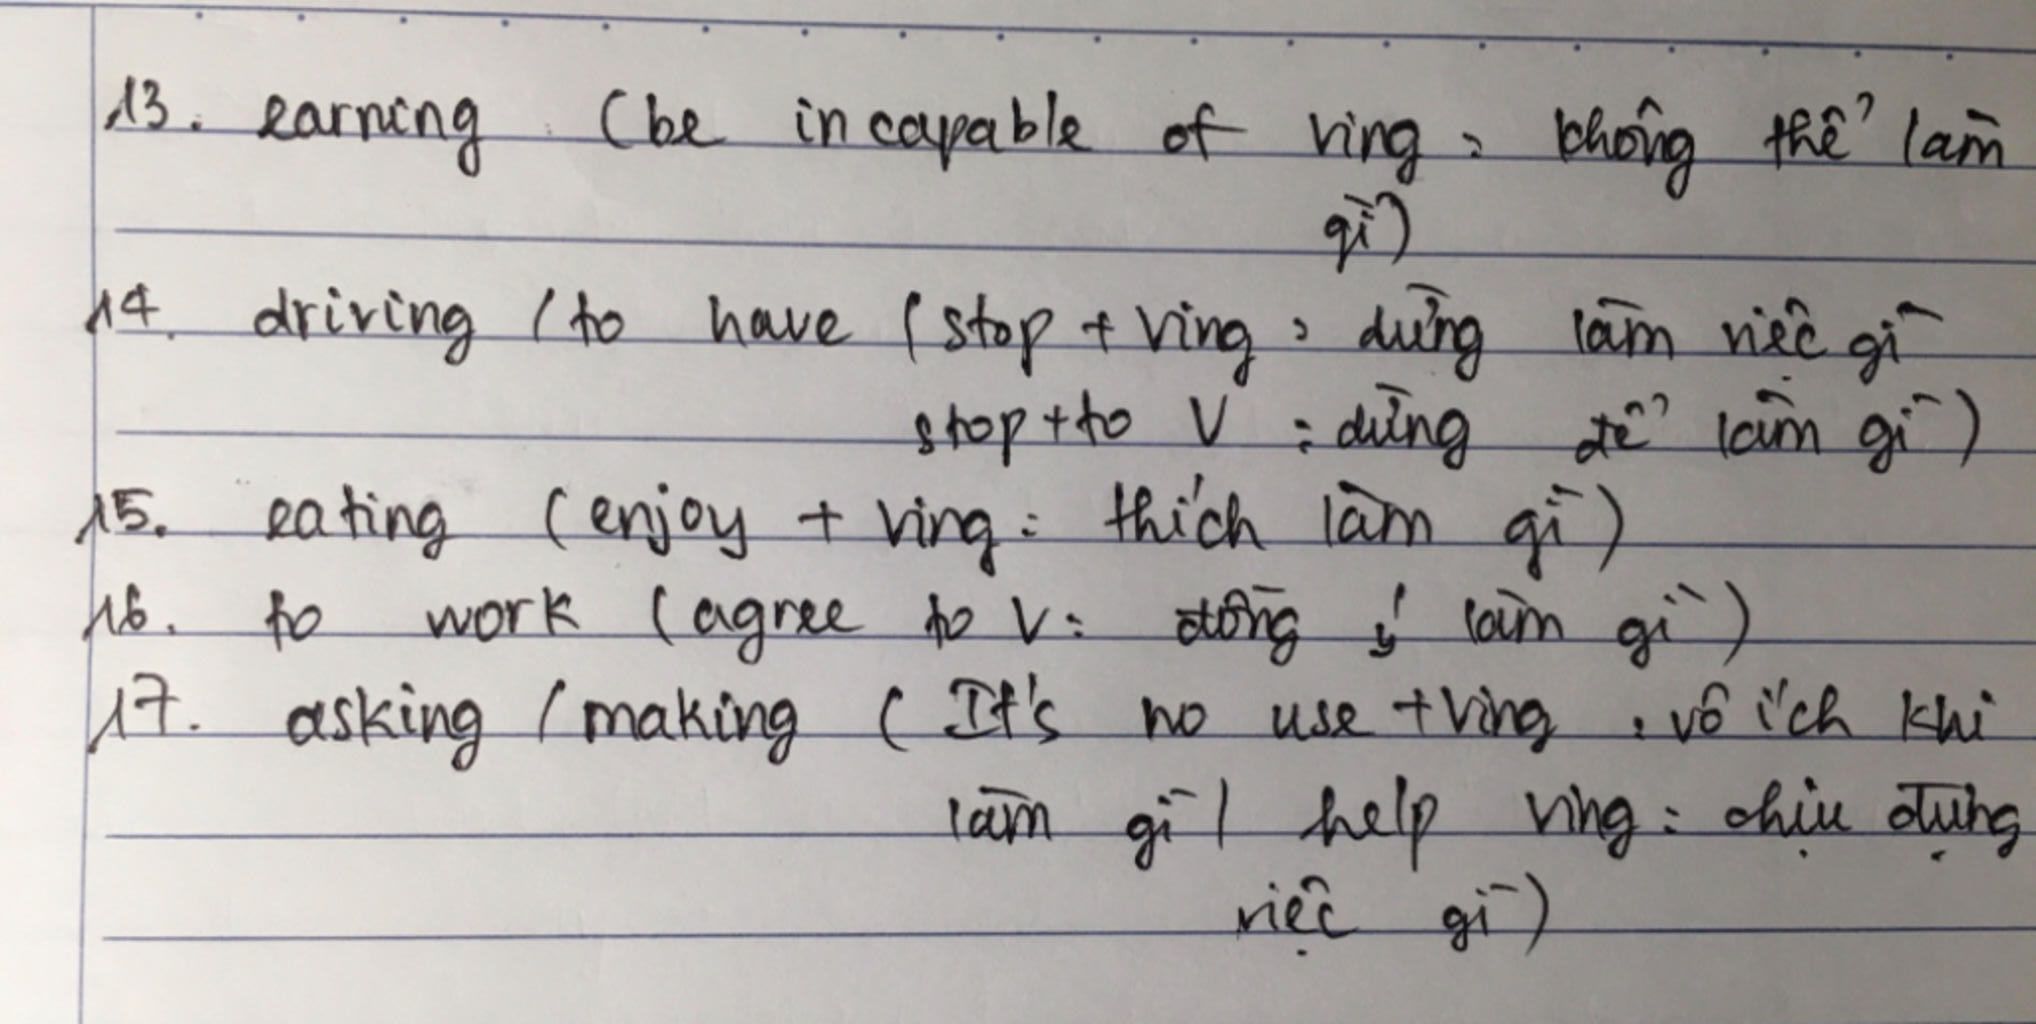 13. earning (be incapable of Ving : không thể làm
gì)
14. driving / to have (stop + Ving : dừng làm việc gì
stop + to V : dừng để làm gì)
15. eating (enjoy + Ving : thích làm gì)
16. to work (agree to V : đồng ý làm gì)
17. asking / making ( It's no use + Ving : vô ích khi
làm gì / help Ving : chịu đựng
việc gì)